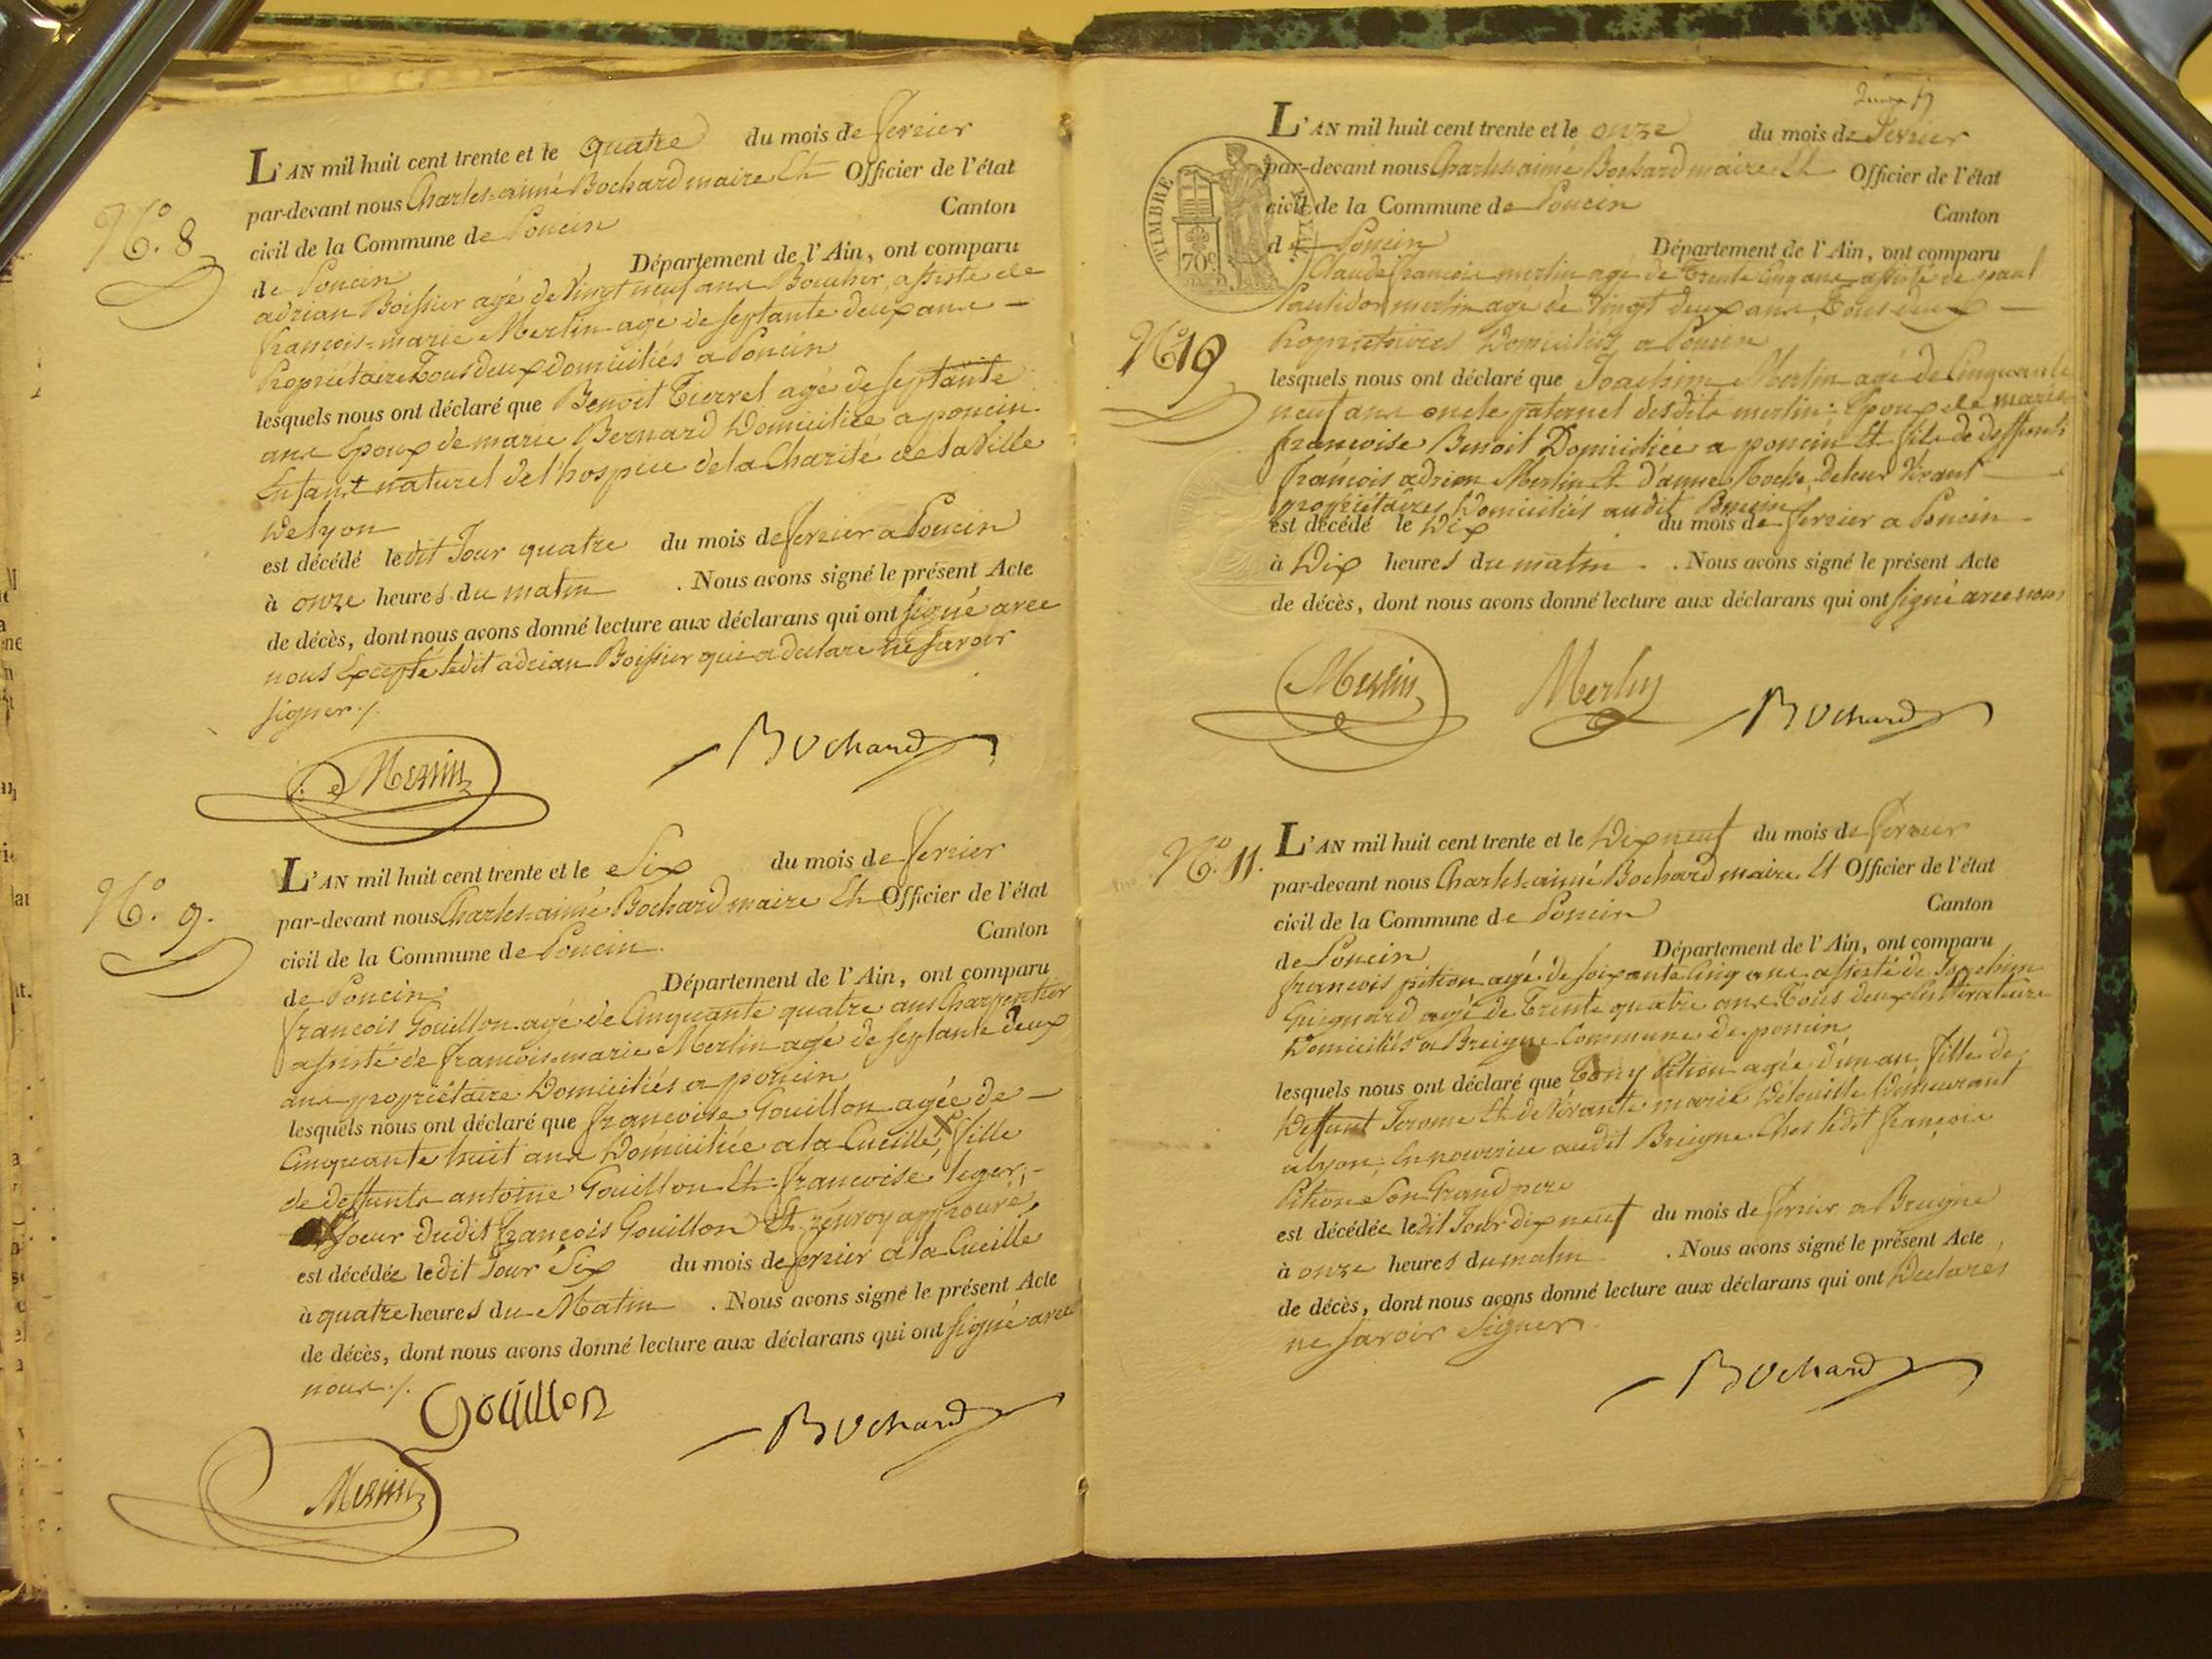 N.º 8
L'AN mil huit cent trente et le quatre du mois de fevrier
par-devant nous Charles-aimé Bochard maire Et Officier de l'état
civil de la Commune de Poncin Canton
de Poncin Département de l'Ain, ont comparu
adrian Boissier agé de Vingt neuf ans Boucher, assisté de
francois-marie Merlin agé de septante deux ans —
Propriétaire Tous deux Domiciliés a Poncin
lesquels nous ont déclaré que Benoit Tierret agé de septante
ans Epoux de marie Bernard Domiciliée a poncin
Enfant naturel de l'hospice de la Charité de la Ville
de lyon
est décédé ledit Jour quatre du mois de fevrier a Poncin
à onze heures du matin . Nous avons signé le présent Acte
de décès, dont nous avons donné lecture aux déclarans qui ont signé avec
nous Excepté ledit adrian Boissier qui a declaré ne savoir
signer ./.
Merlin Bochard
N.º 9.
L'AN mil huit cent trente et le Six du mois de fevrier
par-devant nous Charles-aimé Bochard maire Et Officier de l'état
civil de la Commune de Poncin Canton
de Poncin Département de l'Ain, ont comparu
francois Gouillon agé de Cinquante quatre ans Charpentier
assisté de francois-marie Merlin agé de septante deux
ans propriétaire Domiciliés a poncin
lesquels nous ont déclaré que francoise Gouillon agée de —
Cinquante huit ans Domiciliée a la Cueille, X fille
de deffunts antoine Gouillon Et francoise leger, —
soeur dudit françois Gouillon Et renvoy approuvé,
est décédée ledit Jour Six du mois de fevrier a la Cueille
à quatre heures du Matin . Nous avons signé le présent Acte
de décès, dont nous avons donné lecture aux déclarans qui ont signé avec
nous ./.
Gouillon
Bochard
Merlin
TIMBRE ROYAL
70c
L'AN mil huit cent trente et le onze du mois de fevrier
par-devant nous Charles-aimé Bochard maire Et Officier de l'état
civil de la Commune de Poncin Canton
de Poncin Département de l'Ain, ont comparu
Claude francois merlin agé de Trente Cinq ans assisté de paul
merlin agé de Vingt deux ans, Tous deux —
Nº 10
Propriétaires Domiciliés a Poncin
lesquels nous ont déclaré que Joachim Merlin agé de Cinquante
neuf ans oncle paternel desdits merlin : Epoux de marie
francoise Benoit Domiciliée a poncin Et fils de deffunts
françois adrian Merlin Et d'anne Roche, de leur Vivant
propriétaires Domiciliés audit Poncin
est décédé le Dix du mois de fevrier a Poncin
à Dix heures du matin . Nous avons signé le présent Acte
de décès, dont nous avons donné lecture aux déclarans qui ont signé avec nous
Merlin Merlin Bochard
N.º 11.
L'AN mil huit cent trente et le Dix neuf du mois de fevrier
par-devant nous Charles-aimé Bochard maire Et Officier de l'état
civil de la Commune de Poncin Canton
de Poncin Département de l'Ain, ont comparu
francois pition agé de soixante Cinq ans assisté de Joachim
Guignard agé de Trente quatre ans, Tous deux Cultivateurs
Domiciliés a Breigne Commune de poncin
lesquels nous ont déclaré que Tony Pition agée d'un an fille de
Deffunt Jerome Et de Vivante marie Demeurant
a lyon, En nourrice audit Breigne Chez ledit françois
Pition Son Grand pere
est décédée ledit Jour dix neuf du mois de fevrier a Breigne
à onze heures du matin . Nous avons signé le présent Acte
de décès, dont nous avons donné lecture aux déclarans qui ont Declarés
ne savoir Signer.
Bochard